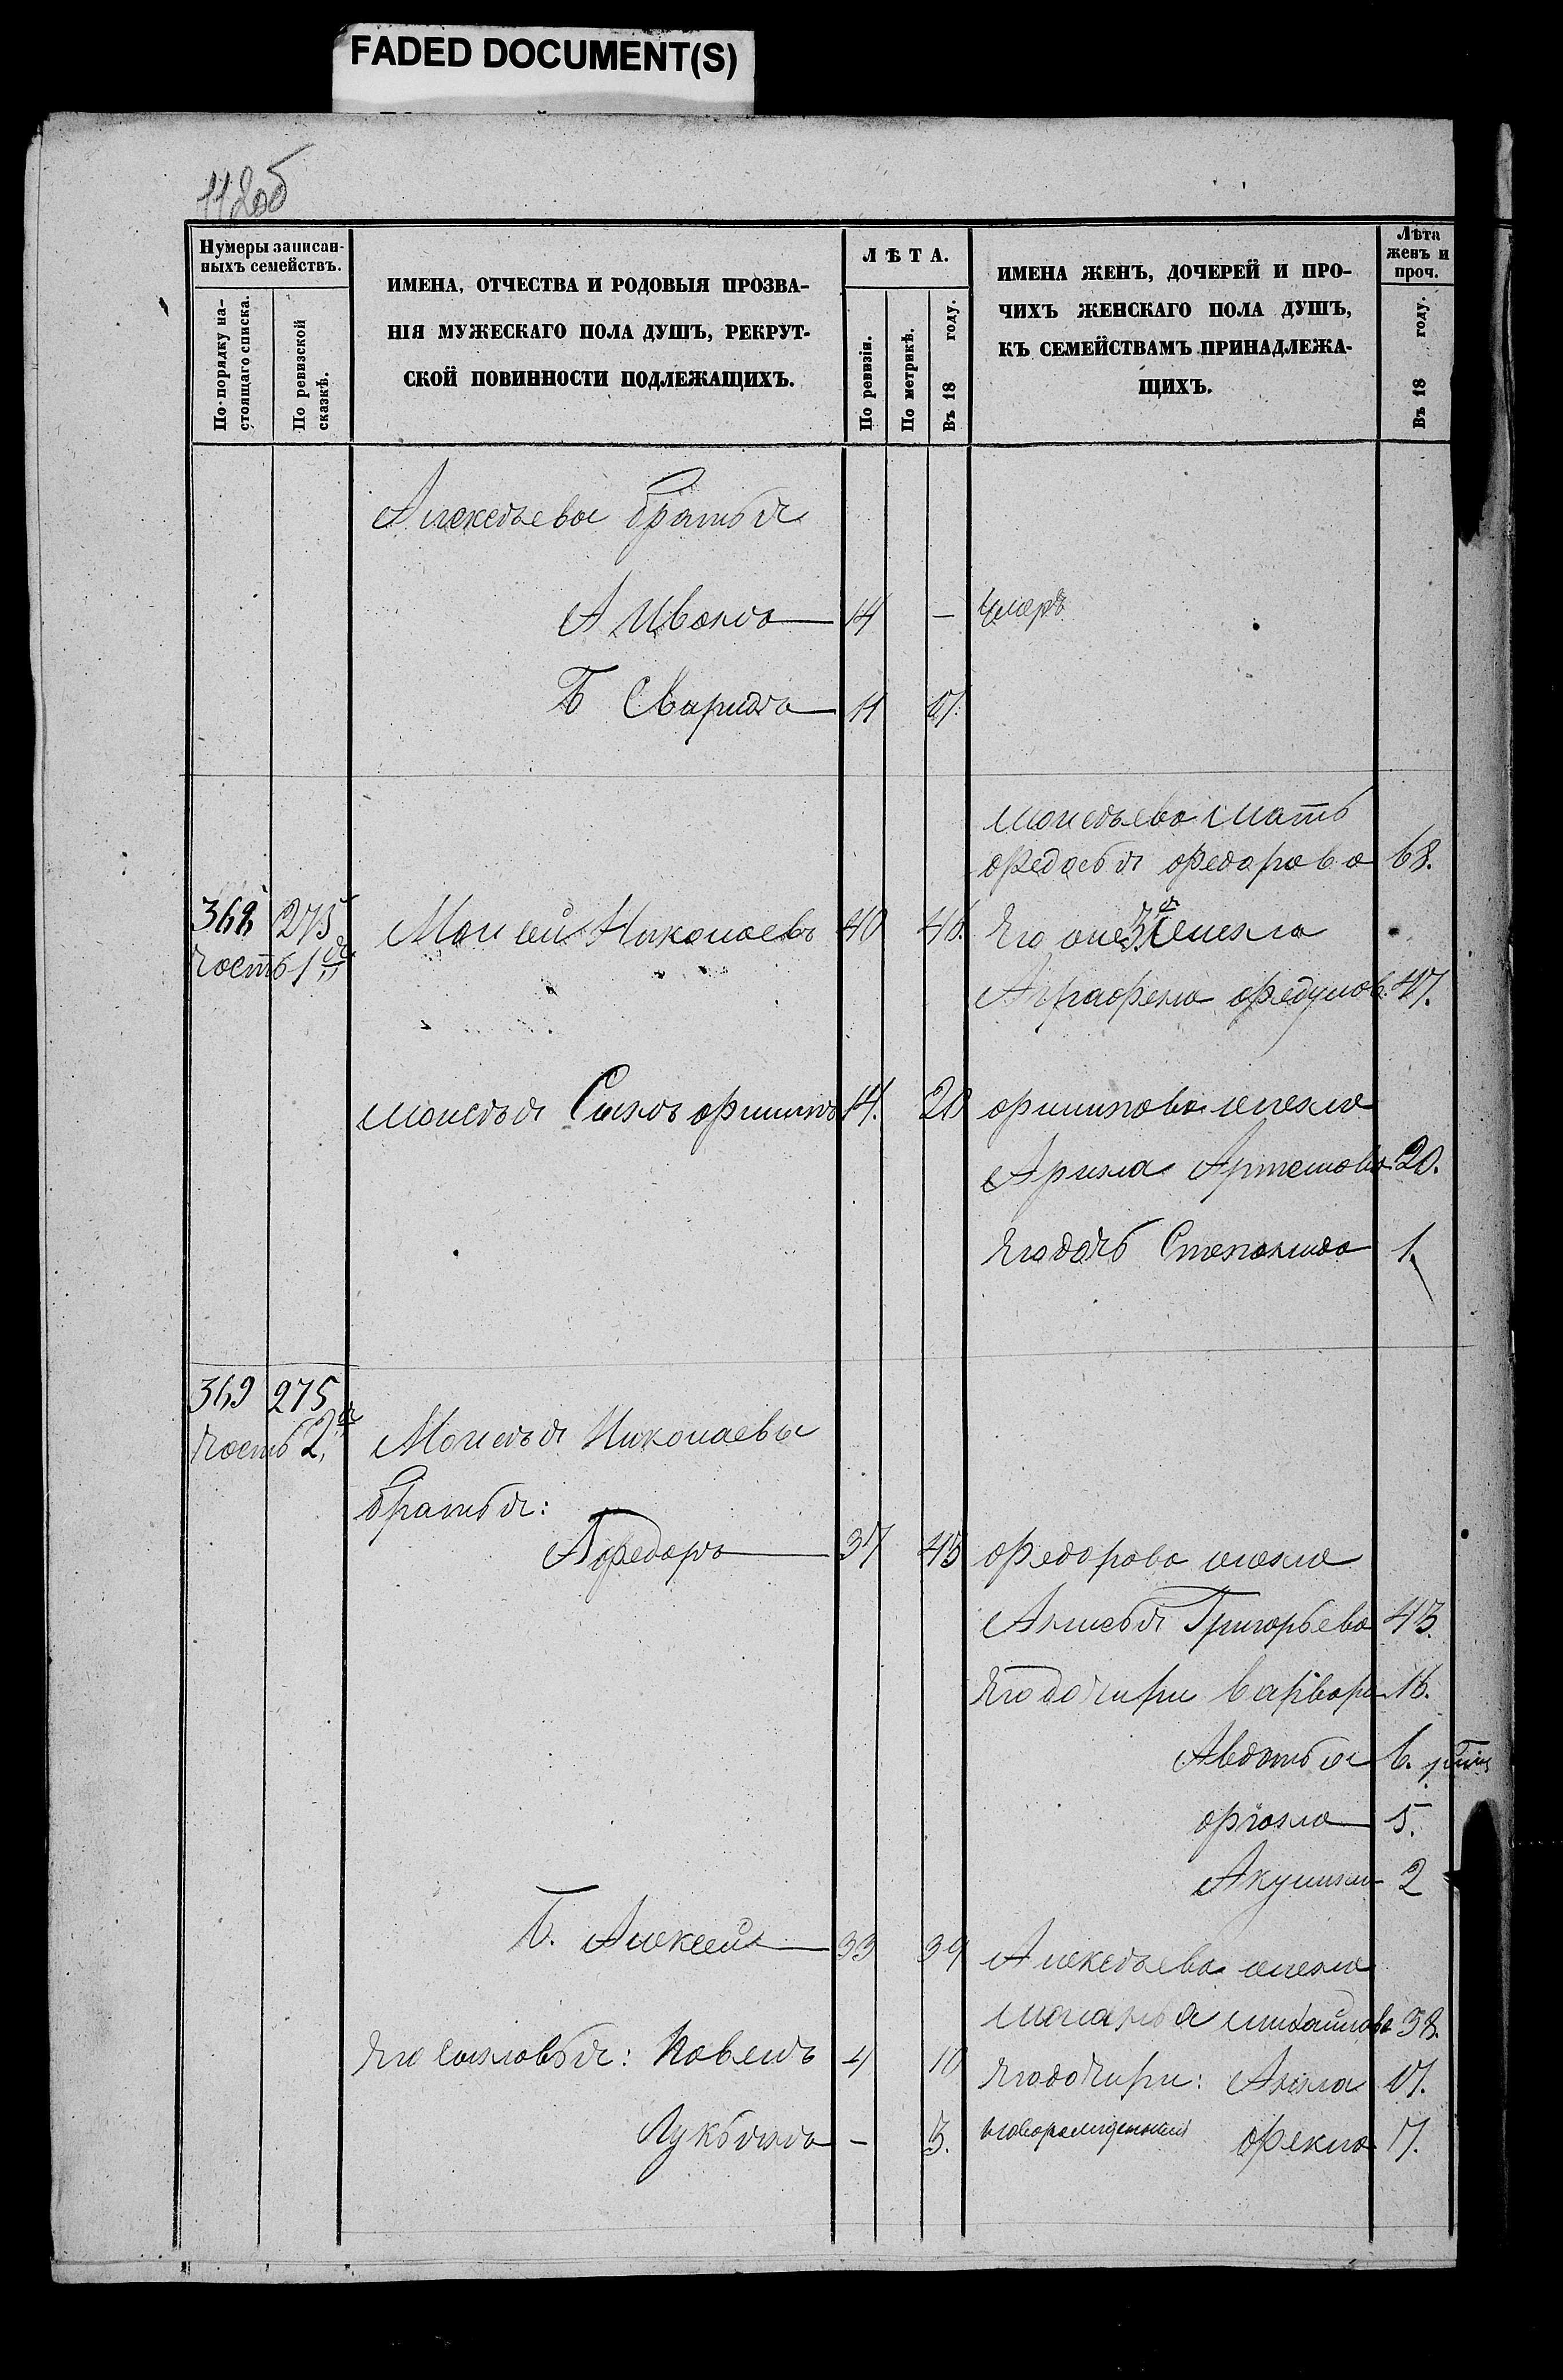 FADED DOCUMENT(S)
112об
Нумеры записан-
ныхъ семействъ.
По порядку на-
стоящаго списка.
По ревизской
сказкѣ.
ИМЕНА, ОТЧЕСТВА И РОДОВЫЯ ПРОЗВА-
НІЯ МУЖЕСКАГО ПОЛА ДУШЪ, РЕКРУТ-
СКОЙ ПОВИННОСТИ ПОДЛЕЖАЩИХЪ.
ЛѢТА.
По ревизіи.
По метрикѣ.
Въ 18 году.
ИМЕНА ЖЕНЪ, ДОЧЕРЕЙ И ПРО-
ЧИХЪ ЖЕНСКАГО ПОЛА ДУШЪ,
КЪ СЕМЕЙСТВАМЪ ПРИНАДЛЕЖА-
ЩИХЪ.
Лѣта
женъ и
проч.
Въ 18 году.
Алексѣевы братья
А Иванъ 14 — умеръ
Б Свиридъ 11 17.
Моисѣева мать
Федосья Федорова 68.
368 275 Моисей Николаевъ 40 46. Его 3я жена
часть 1я
Аграфена Федулов: 47.
Моисѣя Сынъ Филипъ 14. 20 Филипова жена
Арина Артемова 20.
Его дочь Степанида 1.
369 275
часть 2я Моисѣя Николаевы
братья:
А Федоръ 37 43 Федорова жена
Анисья Григорьева 43.
Его дочири Варвара 16.
Авдотья 6.
Фіона 5.
Акулина 2
Б. Алексей 33 39 Алексѣева жена
Маланья Михайлова 38.
Его сыновья: Павелъ 4 10 Его дочири: Анна 17.
Лукьянъ — 3. новорожденный Фекла 7.